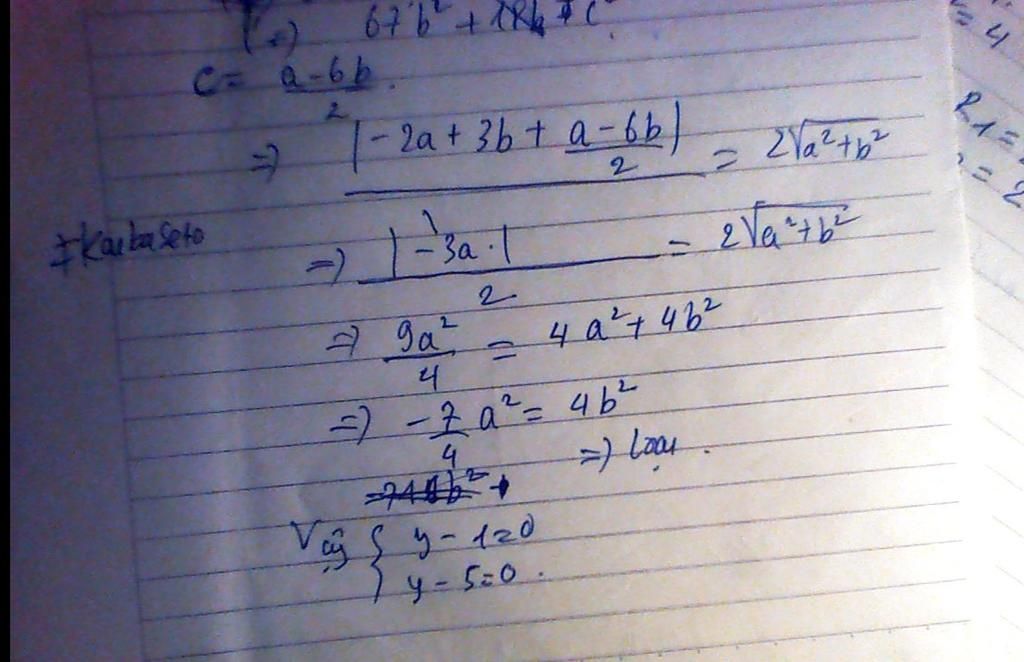 (=) 67b² +
= 4
c = \frac{a-6b}{2}.
R1 =
= 2
=> |-2a + 3b + \frac{a-6b}{2}| = 2\sqrt{a²+b²}
‡Kaibaseto
=> \frac{|-3a.|}{2} = 2\sqrt{a²+b²}
=> \frac{9a²}{4} = 4a² + 4b²
=> -\frac{7}{4}a² = 4b²
=> loại.
Vậy { y - 1 = 0
y - 5 = 0.